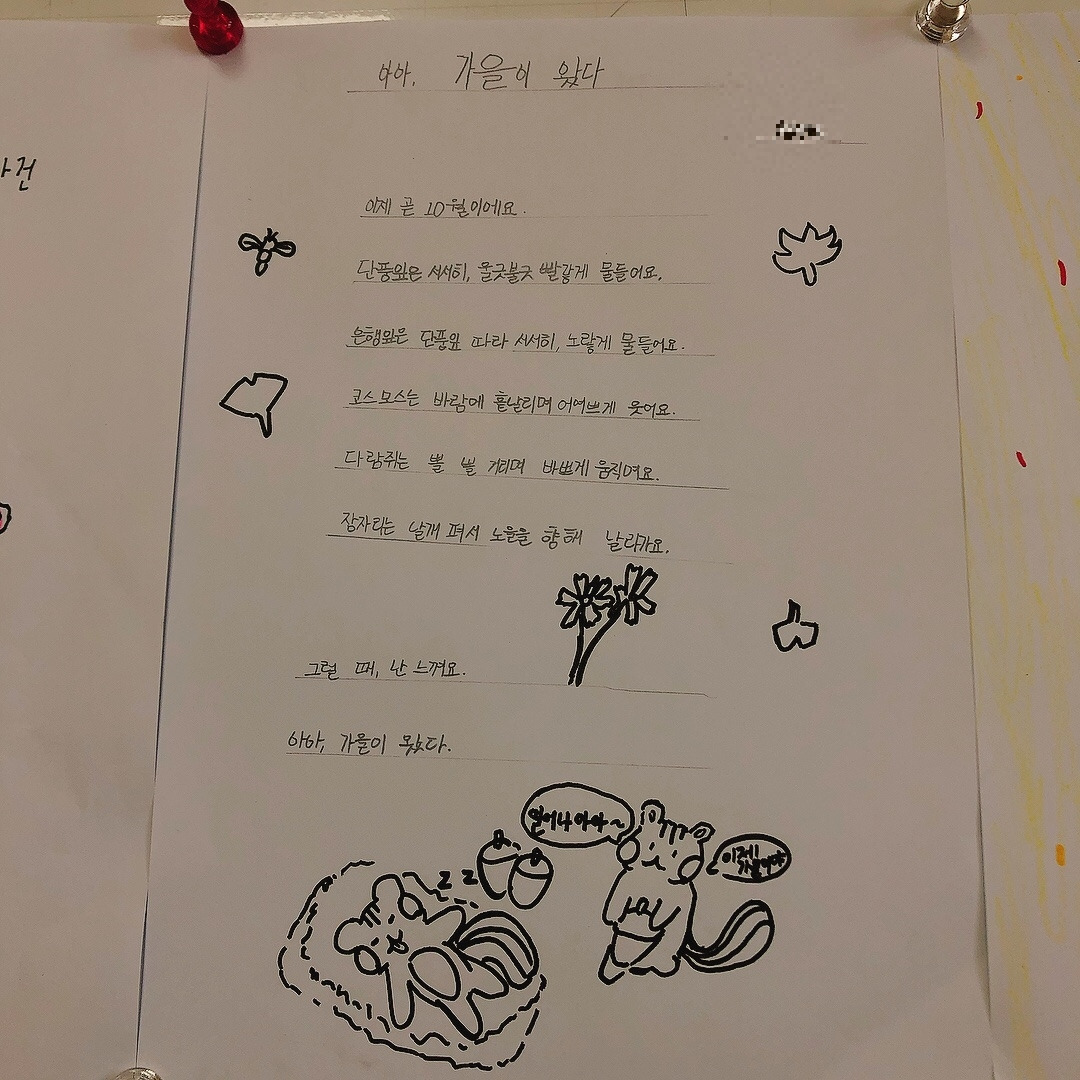 아아, 가을이 왔다
사건
이제 곧 10월이에요.
단풍잎은 서서히, 울긋불긋 빨갛게 물들어요.
은행잎은 단풍잎 따라 서서히, 노랗게 물들어요.
코스모스는 바람에 흩날리며 어여쁘게 웃어요.
다람쥐는 뽈 뽈 거리며 바쁘게 움직여요.
잠자리는 날개 펴서 노을을 향해 날라가요.
그럴 때, 난 느껴요.
아아, 가을이 왔다.
일어나 아아~
이제 가을이야
z z